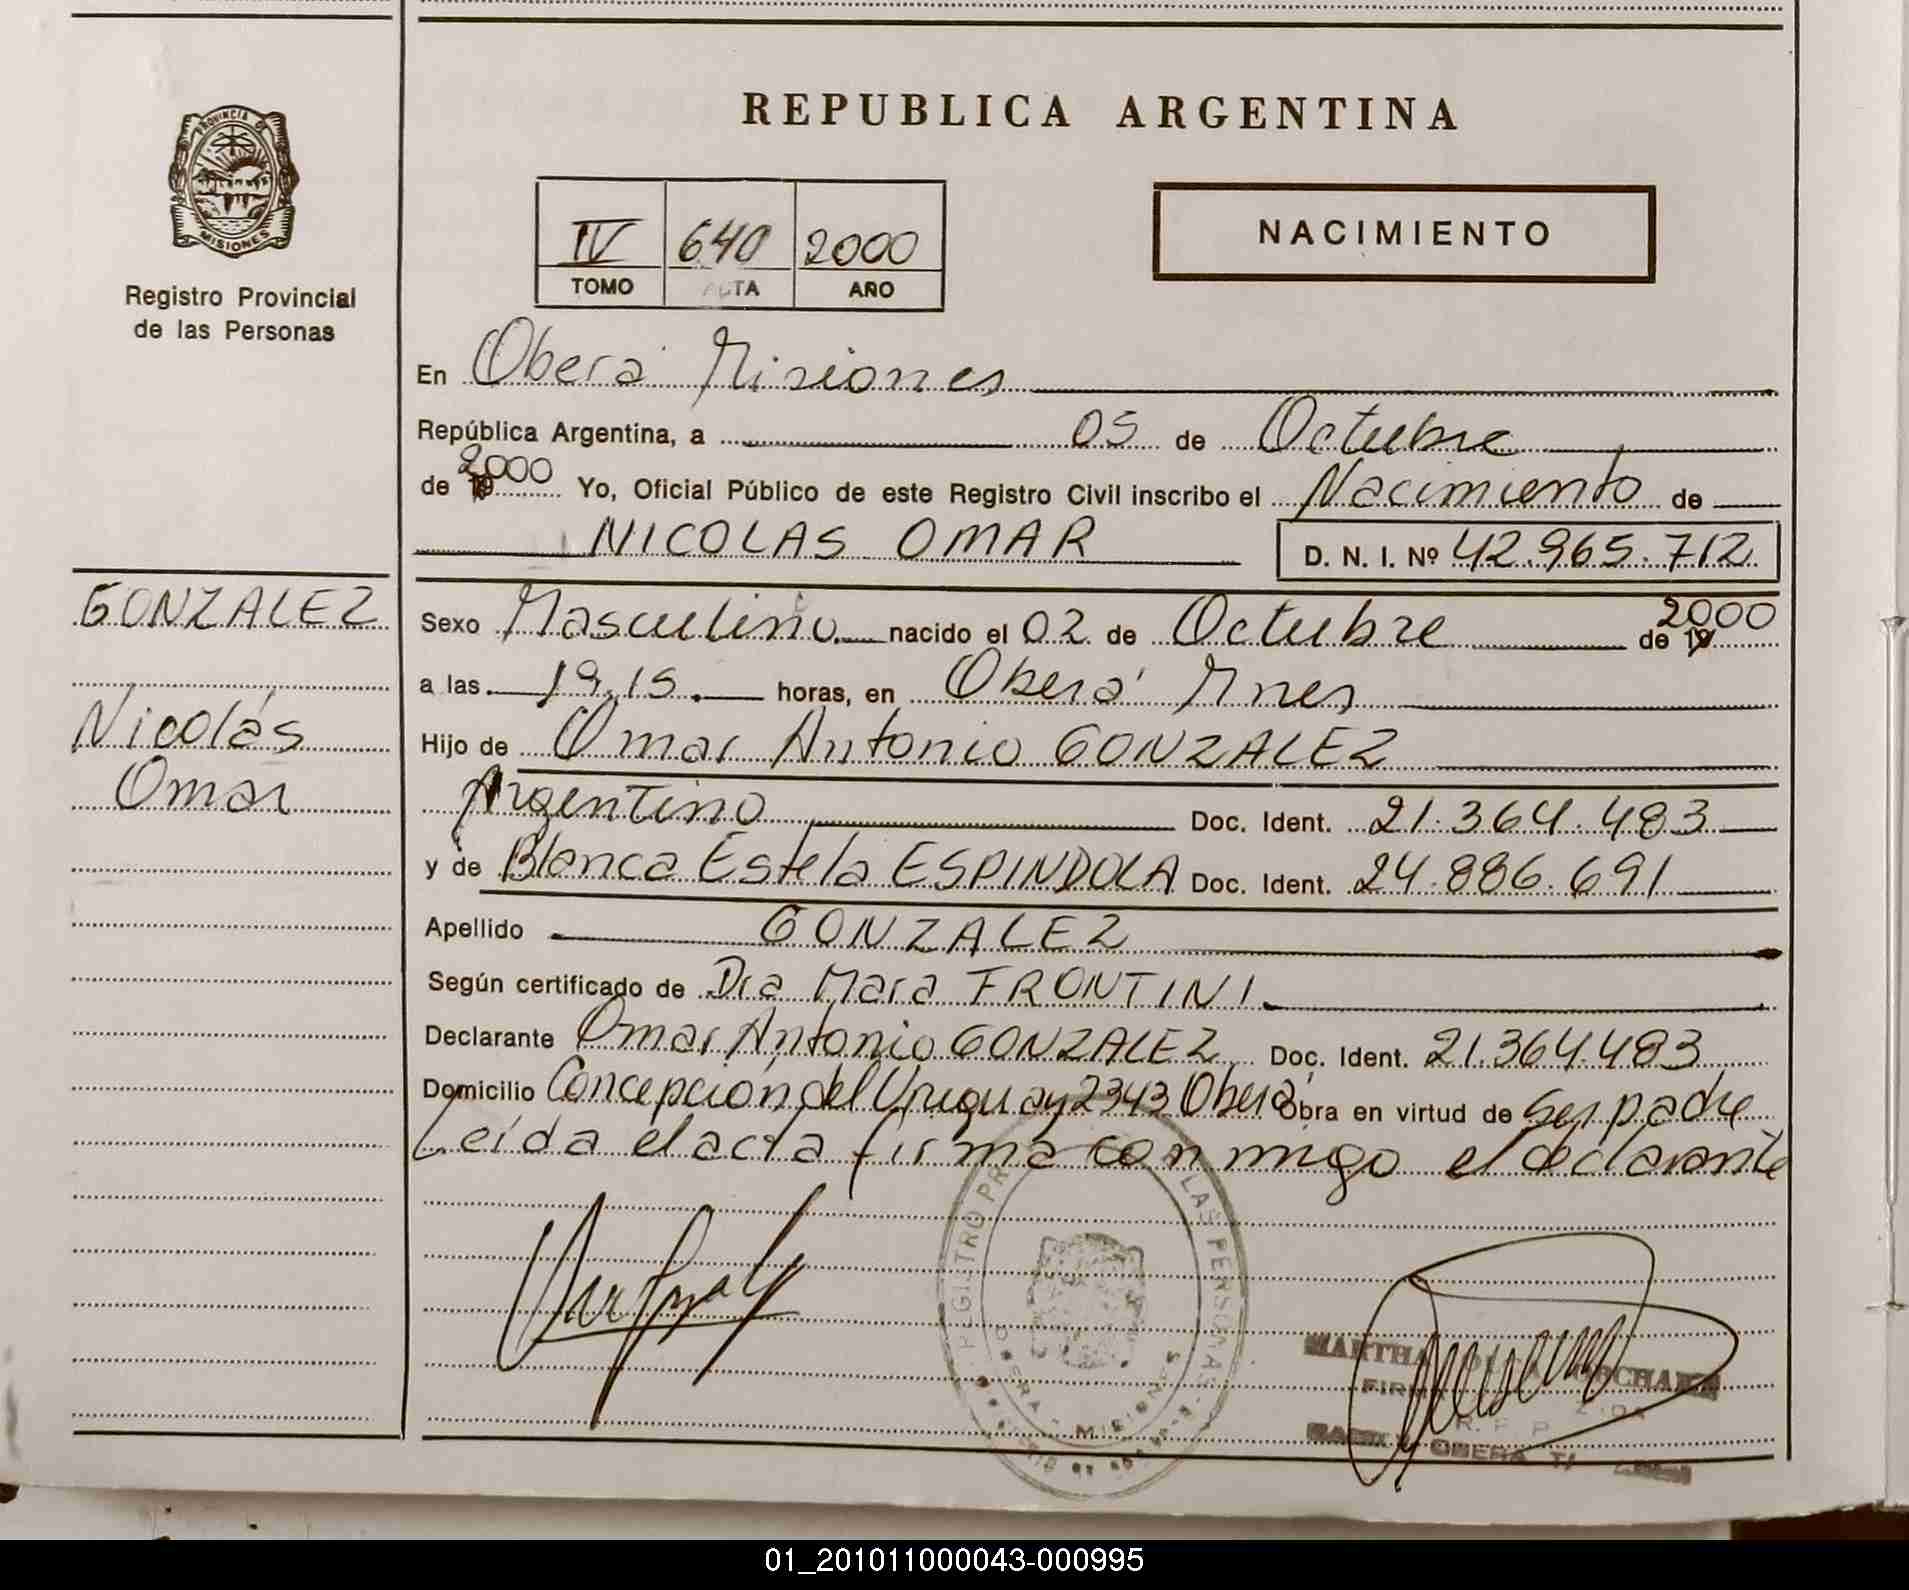 PROVINCIA D
MISIONES
Registro Provincial
de las Personas
GONZALEZ
Nicolás
Omar
REPUBLICA ARGENTINA
IV 640 2000
TOMO ACTA AÑO
NACIMIENTO
En Oberá Misiones
República Argentina, a 05 de Octubre
de 19 2000 Yo, Oficial Público de este Registro Civil inscribo el Nacimiento de
NICOLAS OMAR D. N. I. Nº 42.965.712
Sexo Masculino nacido el 02 de Octubre de 19 2000
a las 19.15. horas, en Oberá Mnes
Hijo de Omar Antonio GONZALEZ
Argentino Doc. Ident. 21.364.483
y de Blanca Estela ESPINDOLA Doc. Ident. 24.886.691
Apellido GONZALEZ
Según certificado de Dra Mara FRONTINI
Declarante Omar Antonio GONZALEZ Doc. Ident. 21.364.483
Domicilio Concepción del Uruguay 2343 Oberá Obra en virtud de Ser padre
Leída el acta firma conmigo el declarante
REGISTRO PR LAS PERSONAS
OBERA - MISIONES
MARTHA
FIRMA
R. P. P.
OBERA
01_201011000043-000995